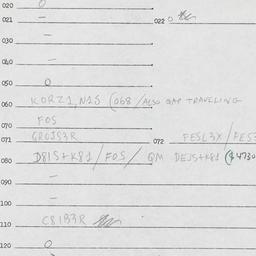 020 0
021 — 022 0
030 —
040 —
050 0
060 KORZ1, N1S (068 / ALSO QAP TRAVELING
070 FOS
071 GROJS3R 072 FESL3X /
080 D8IS+K81 / FOS / QM DEJS+K81 ($4730
090 —
100 —
110 C81B3R
120 0